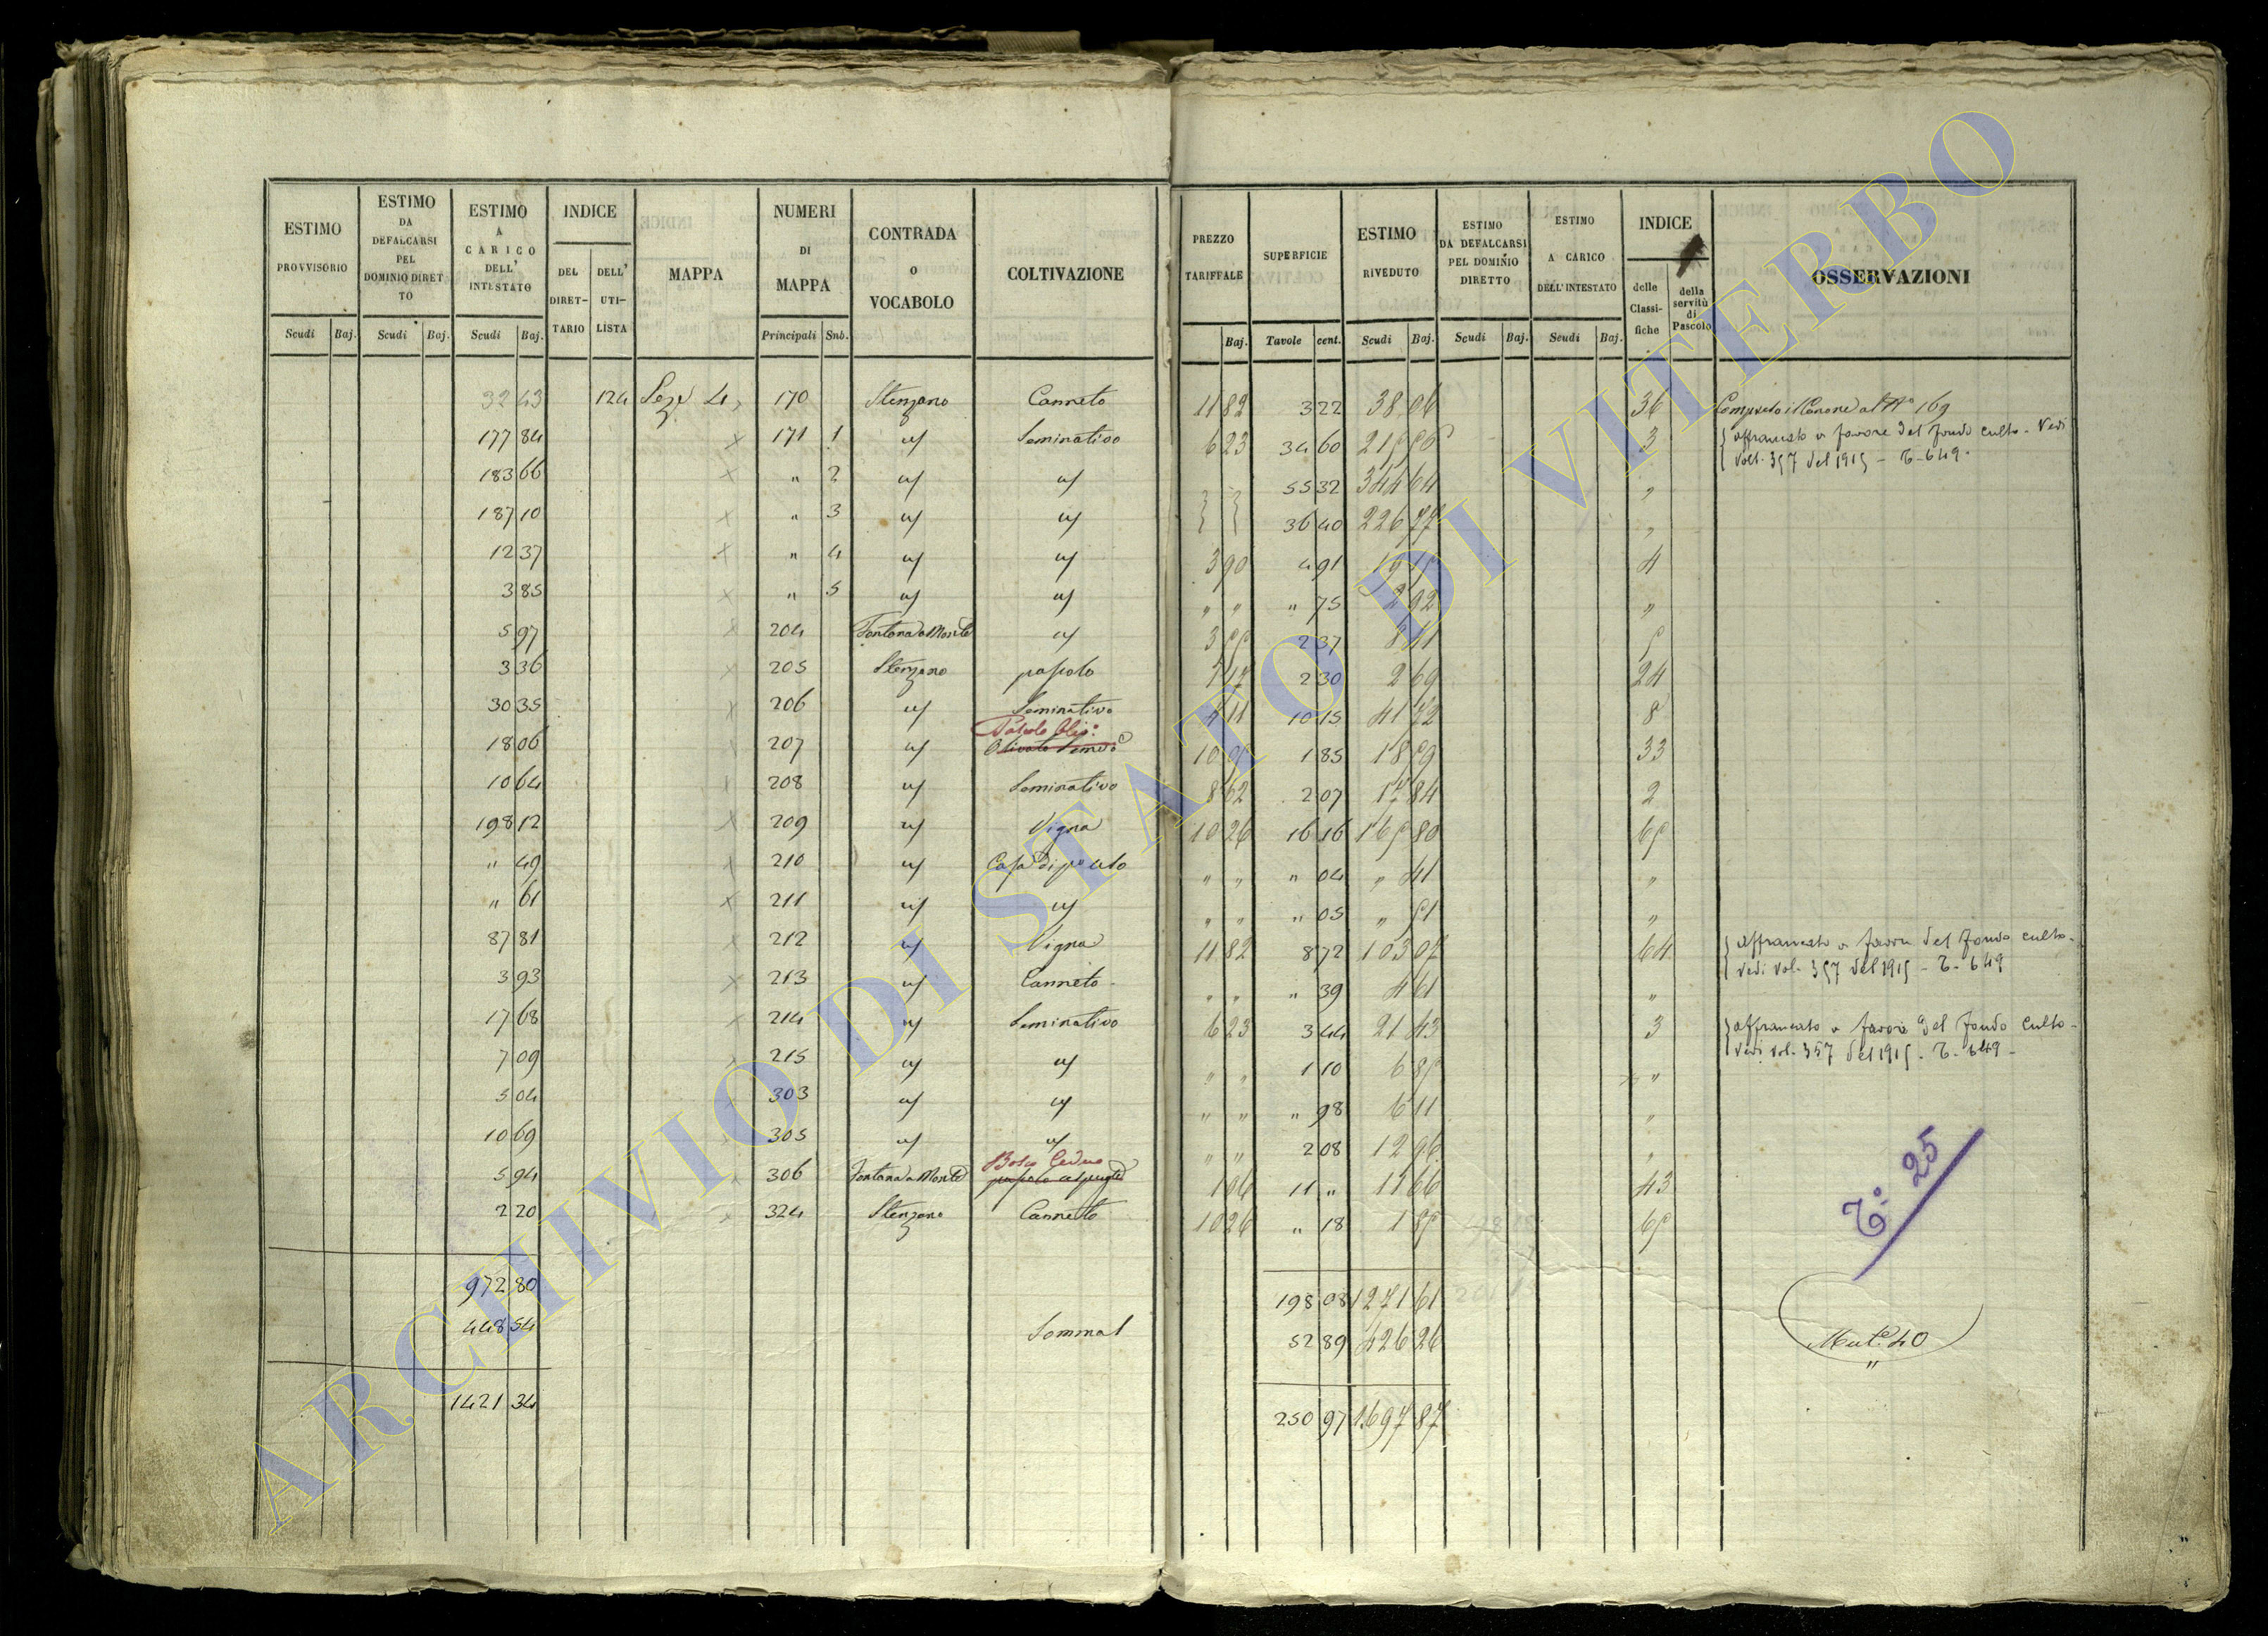 ESTIMO PROVVISORIO
ESTIMO DA DEFALCARSI PEL DOMINIO DIRETTO
ESTIMO A CARICO DELL' INTESTATO
INDICE
DEL DIRETTARIO
DELL' UTILISTA
MAPPA
NUMERI DI MAPPA
CONTRADA O VOCABOLO
COLTIVAZIONE
PREZZO TARIFFALE
SUPERFICIE
ESTIMO RIVEDUTO
ESTIMO DA DEFALCARSI PEL DOMINIO DIRETTO
ESTIMO A CARICO DELL'INTESTATO
INDICE
delle Classifiche
della servitù di Pascolo
OSSERVAZIONI
Scudi Baj. Scudi Baj. Scudi Baj. Principali Snb. Baj. Tavole cent. Scudi Baj. Scudi Baj. Scudi Baj.
32 43 124 Seze 4 170 Stenzano Canneto 11 82 3 22 38 06 36
177 84 x 171 1 Seminativo 6 23 34 60 3
affrancato a favore del fondo culto - Vedi
vol. 357 del 1915 - T- 649.
183 66 x " 2 55 32 344 64 "
187 10 x " 3 36 40 226 77 "
12 37 x " 4 3 90 4 91 4
3 85 x " 5 " " " 75 2 92 "
5 97 x 204 Fontana a Monte 2 37
3 36 x 205 Stenzano pascolo 2 30 2 69 24
30 35 x 206 Seminativo 4 11 10 15 41 72 8
Pascolo Oliv:
18 06 207 1 85 33
10 64 208 Seminativo 8 62 2 07 17 84 2
198 12 x 209 Vigna 10 26 16 16 165 80 65
" 49 210 " " " 04 " 41 "
" 61 x 211 " " " 05 " 51 "
87 81 212 Vigna 11 82 8 72 103 07 64
affrancato a favore del fondo culto -
Vedi vol. 357 del 1915 - T- 649
3 93 x 213 Canneto - " " " 39 4 61 "
17 68 214 Seminativo 6 23 3 44 21 43 3
affrancato a favore del fondo culto -
Vedi vol. 357 del 1915 - T- 649 -
7 09 215 " " 1 10 6 85 "
5 04 303 " " " 98 6 11 "
10 69 305 " " 2 08 12 96 "
Bosco Ceduo
5 94 306 Fontana a Monte 1 06 11 " 11 66 43
2 20 324 Stenzano Canneto 10 26 " 18 1 85 65
T: 25
972 80 198 08 1271 61
448 54 Somma 52 89 426 26
Mut. 40
1421 34 250 97 1697 87
ARCHIVIO DI STATO DI VITERBO